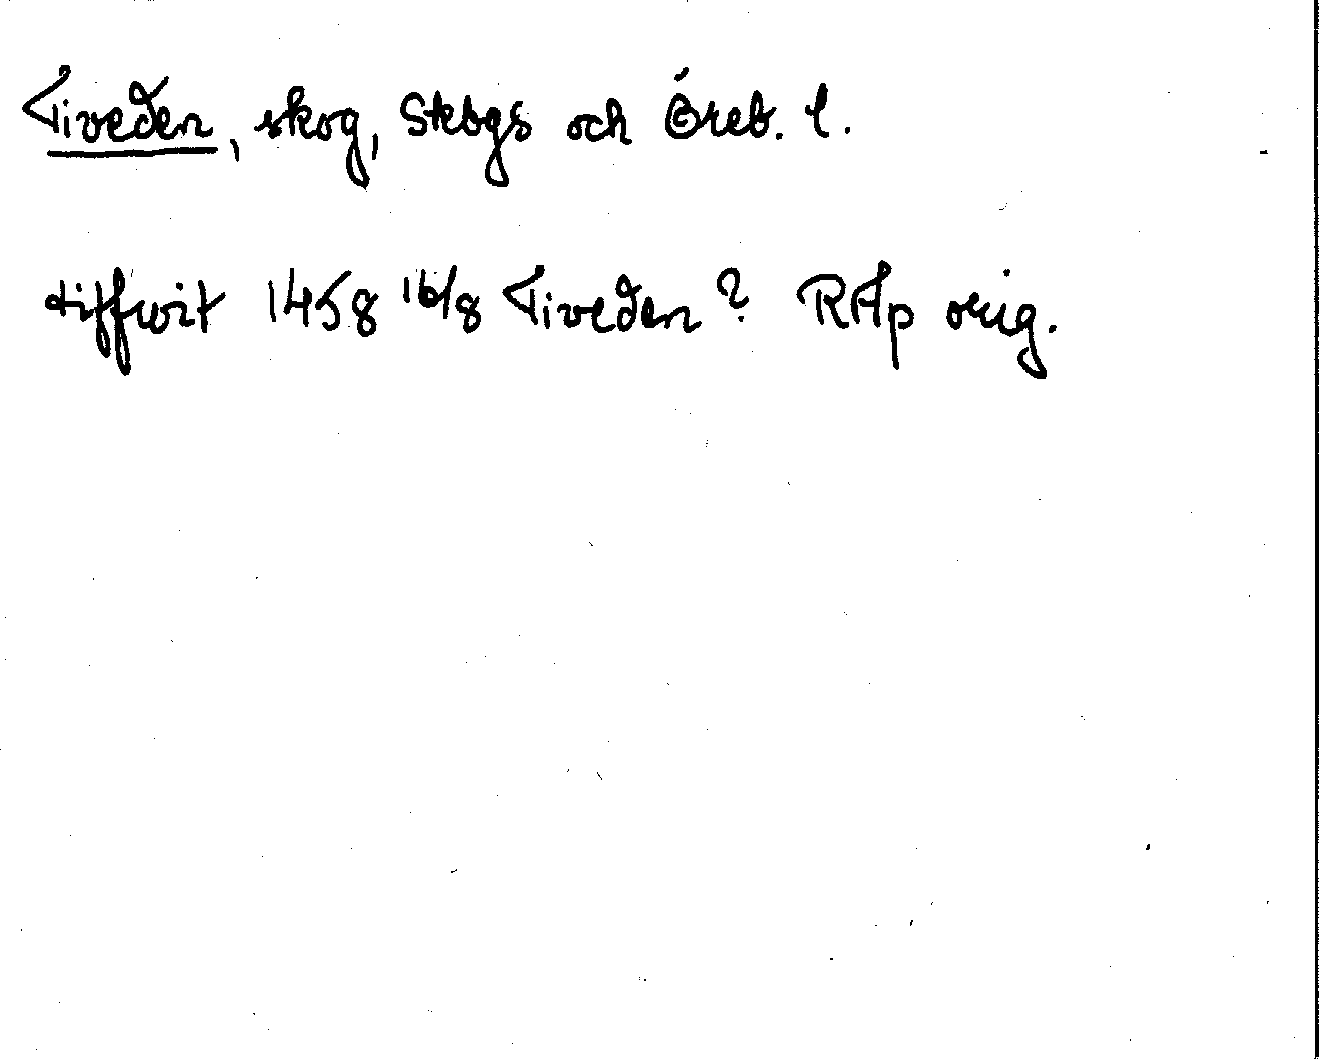 Tiveden, skog, Skbgs och Öreb. l.
tiffwit 1458 16/8 Tiveden? RAp orig.